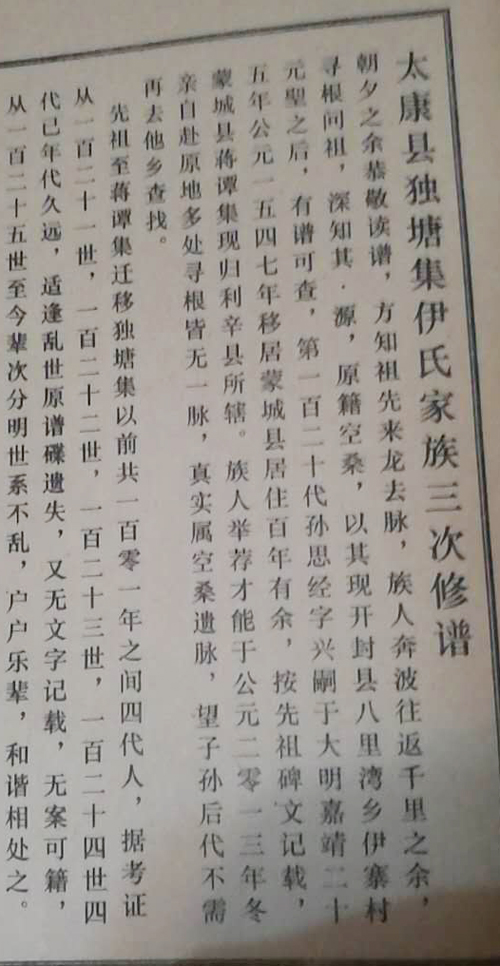 太康县独塘集伊氏家族三次修谱
朝夕之余恭敬读谱，方知祖先来龙去脉，族人奔波往返千里之余，
寻根问祖，深知其·源，原籍空桑，以其现开封县八里湾乡伊寨村
元聖之后，有谱可查，第一百二十代孙思经字兴嗣于大明嘉靖二十
五年公元一五四七年移居蒙城县居住百年有余，按先祖碑文记载，
蒙城县蒋谭集现归利辛县所辖。族人举荐才能于公元二零一三年冬
亲自赴原地多处寻根皆无一脉，真实属空桑遗脉，望子孙后代不需
再去他乡查找。
先祖至蒋谭集迁移独塘集以前共一百零一年之间四代人，据考证
从一百二十一世，一百二十二世，一百二十三世，一百二十四世四
代已年代久远，适逢乱世原谱碟遗失，又无文字记载，无案可籍，
从一百二十五世至今辈次分明世系不乱，户户乐辈，和谐相处之。